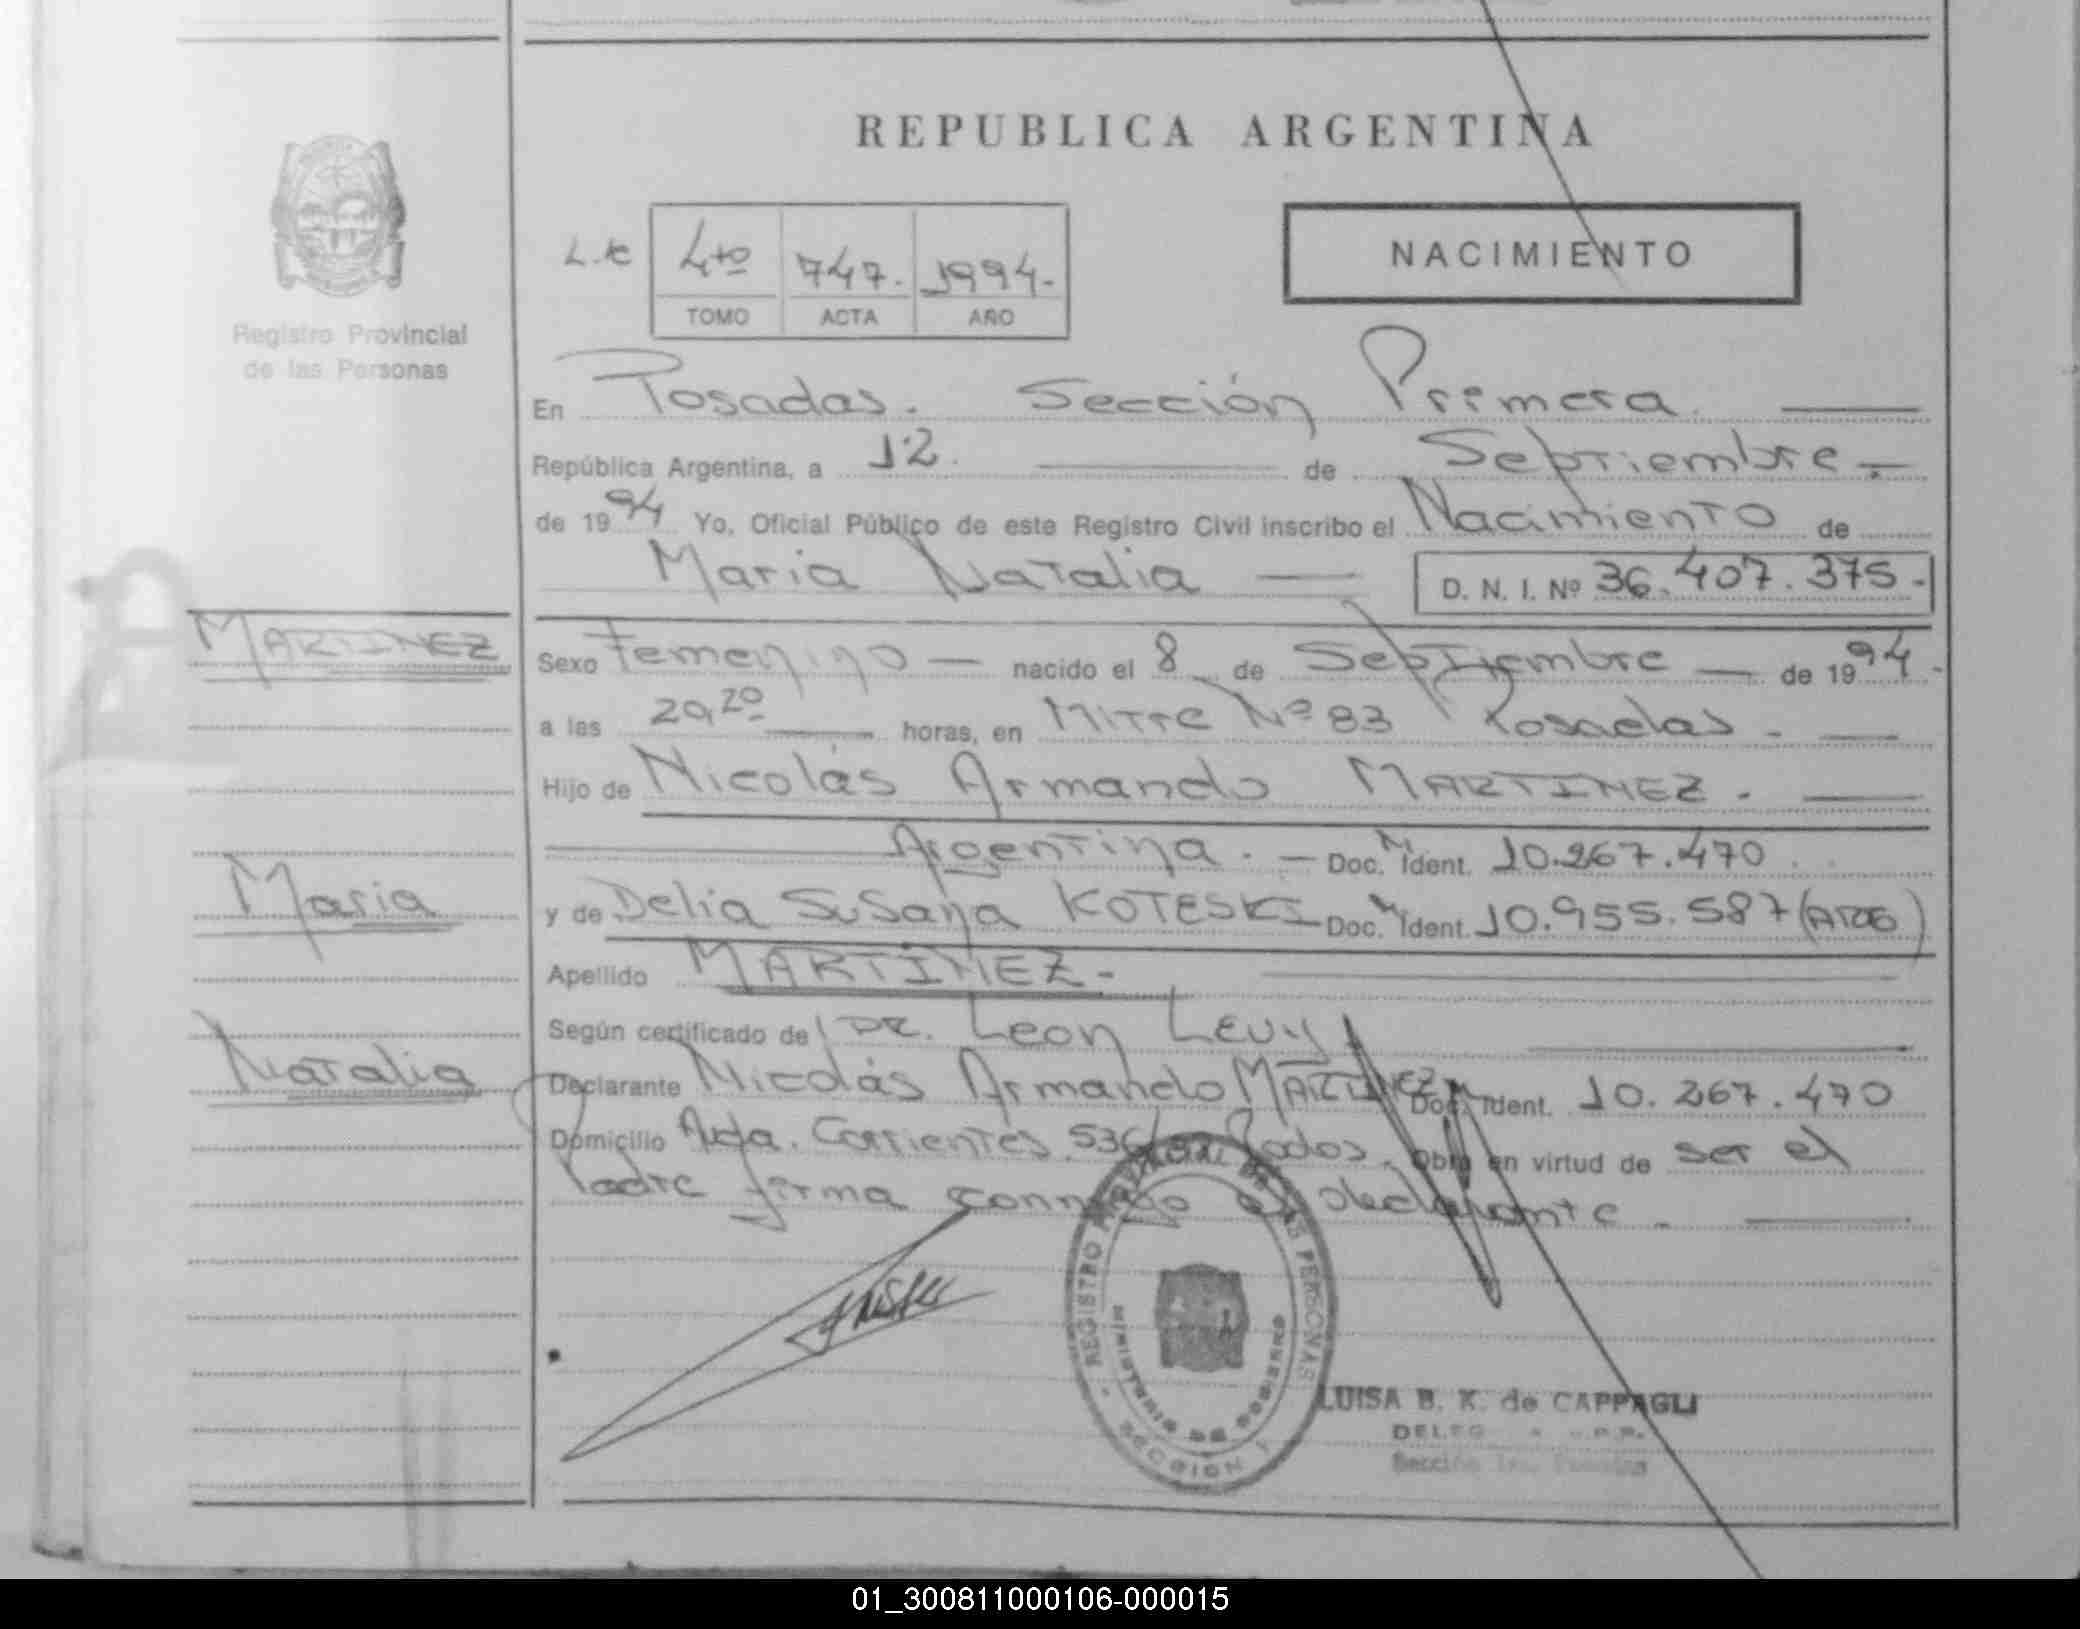 REPUBLICA ARGENTINA
Registro Provincial
de las Personas
4to 747. 1994.-
TOMO ACTA AÑO
NACIMIENTO
En Posadas. Sección Primera.
República Argentina, a 12. de Septiembre.-
de 1994 Yo, Oficial Público de este Registro Civil inscribo el Nacimiento de
Maria Natalia D. N. I. Nº 36.407.375.-
MARTINEZ
Sexo Femenino nacido el 8 de Septiembre de 1994.-
a las 20,20 horas, en Mitre Nº 83 Posadas.
Hijo de Nicolás Armando MARTINEZ.
Argentina. Doc. Ident. 10.267.470
Maria
y de Delia Susana KOTESKI Doc. Ident. 10.955.587 (ARG)
Apellido MARTINEZ.-
Según certificado de DR. Leon Levy
Natalia
Declarante Nicolás Armando MARTINEZ Doc. Ident. 10.267.470
Domicilio Avda. Corrientes Obra en virtud de ser el
Padre firma conmigo el declarante.
REGISTRO PROVINCIAL DE LAS PERSONAS
MINISTERIO DE GOBIERNO
SECCION
LUISA B. K. de CAPPAGLI
01_300811000106-000015